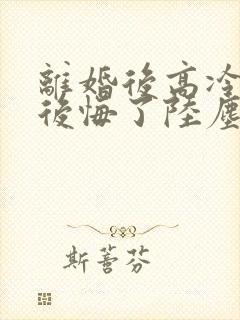 離婚後高冷
後悔了陸塵
斯蕾芬